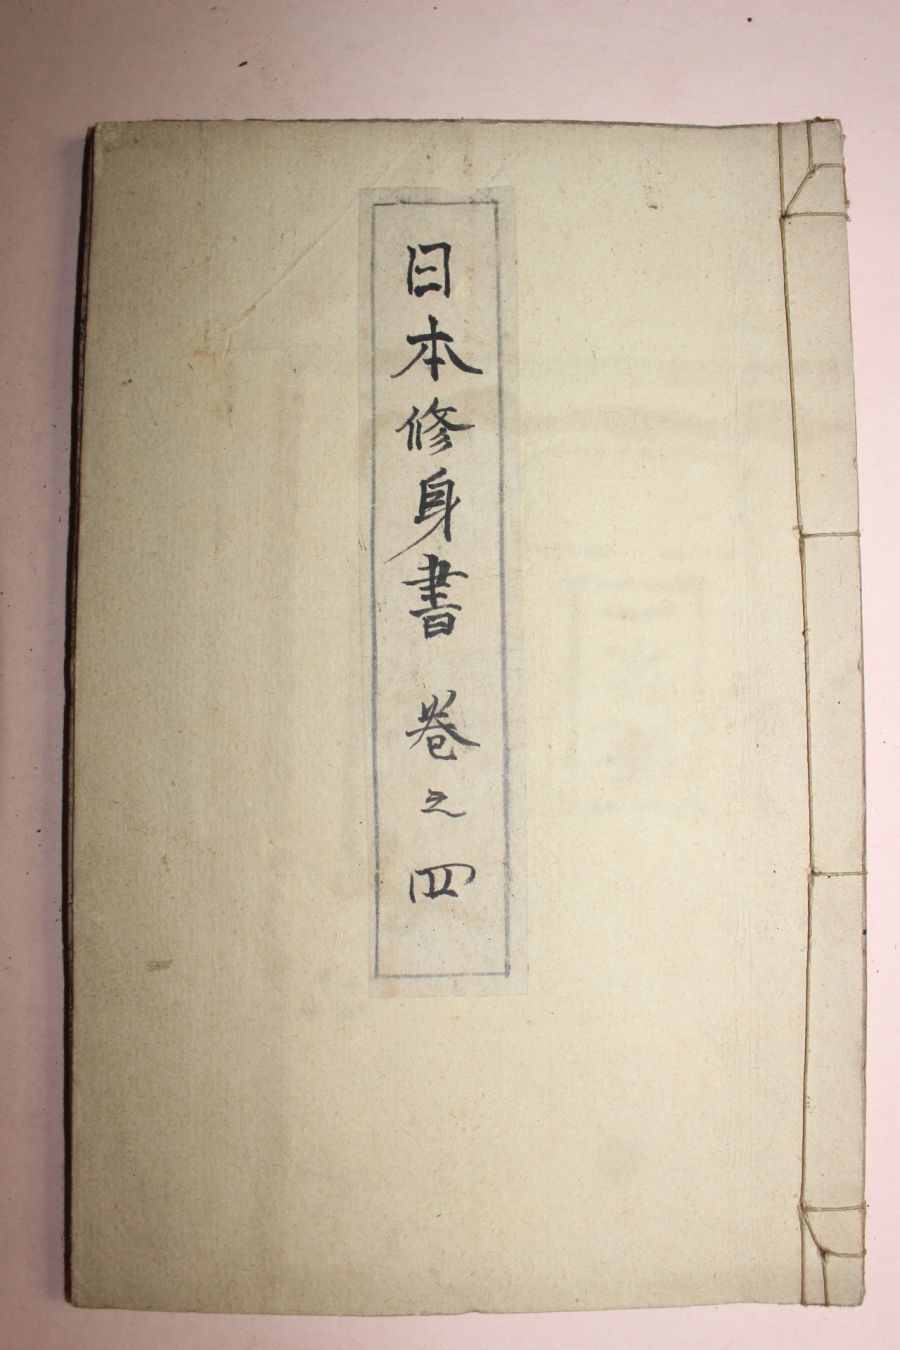 日本修身書 卷之四